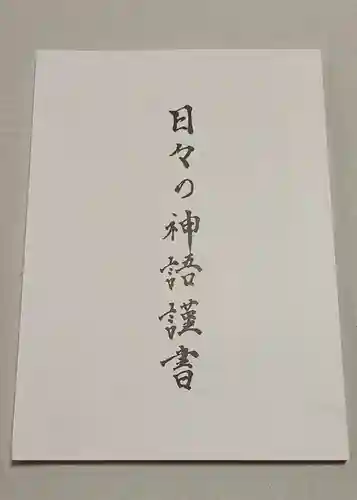 日々の神語謹書